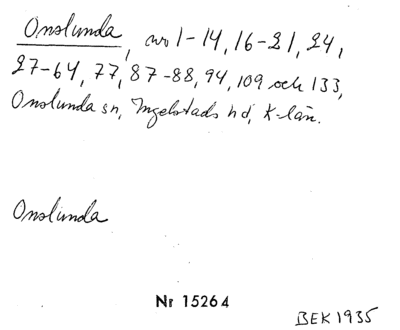 Onslunda, nr 1-14, 16-21, 24,
27-64, 77, 87-88, 94, 109 och 133,
Onslunda sn, Ingelstads hd, K-län.
Onslunda
Nr 15264
BEK 1935